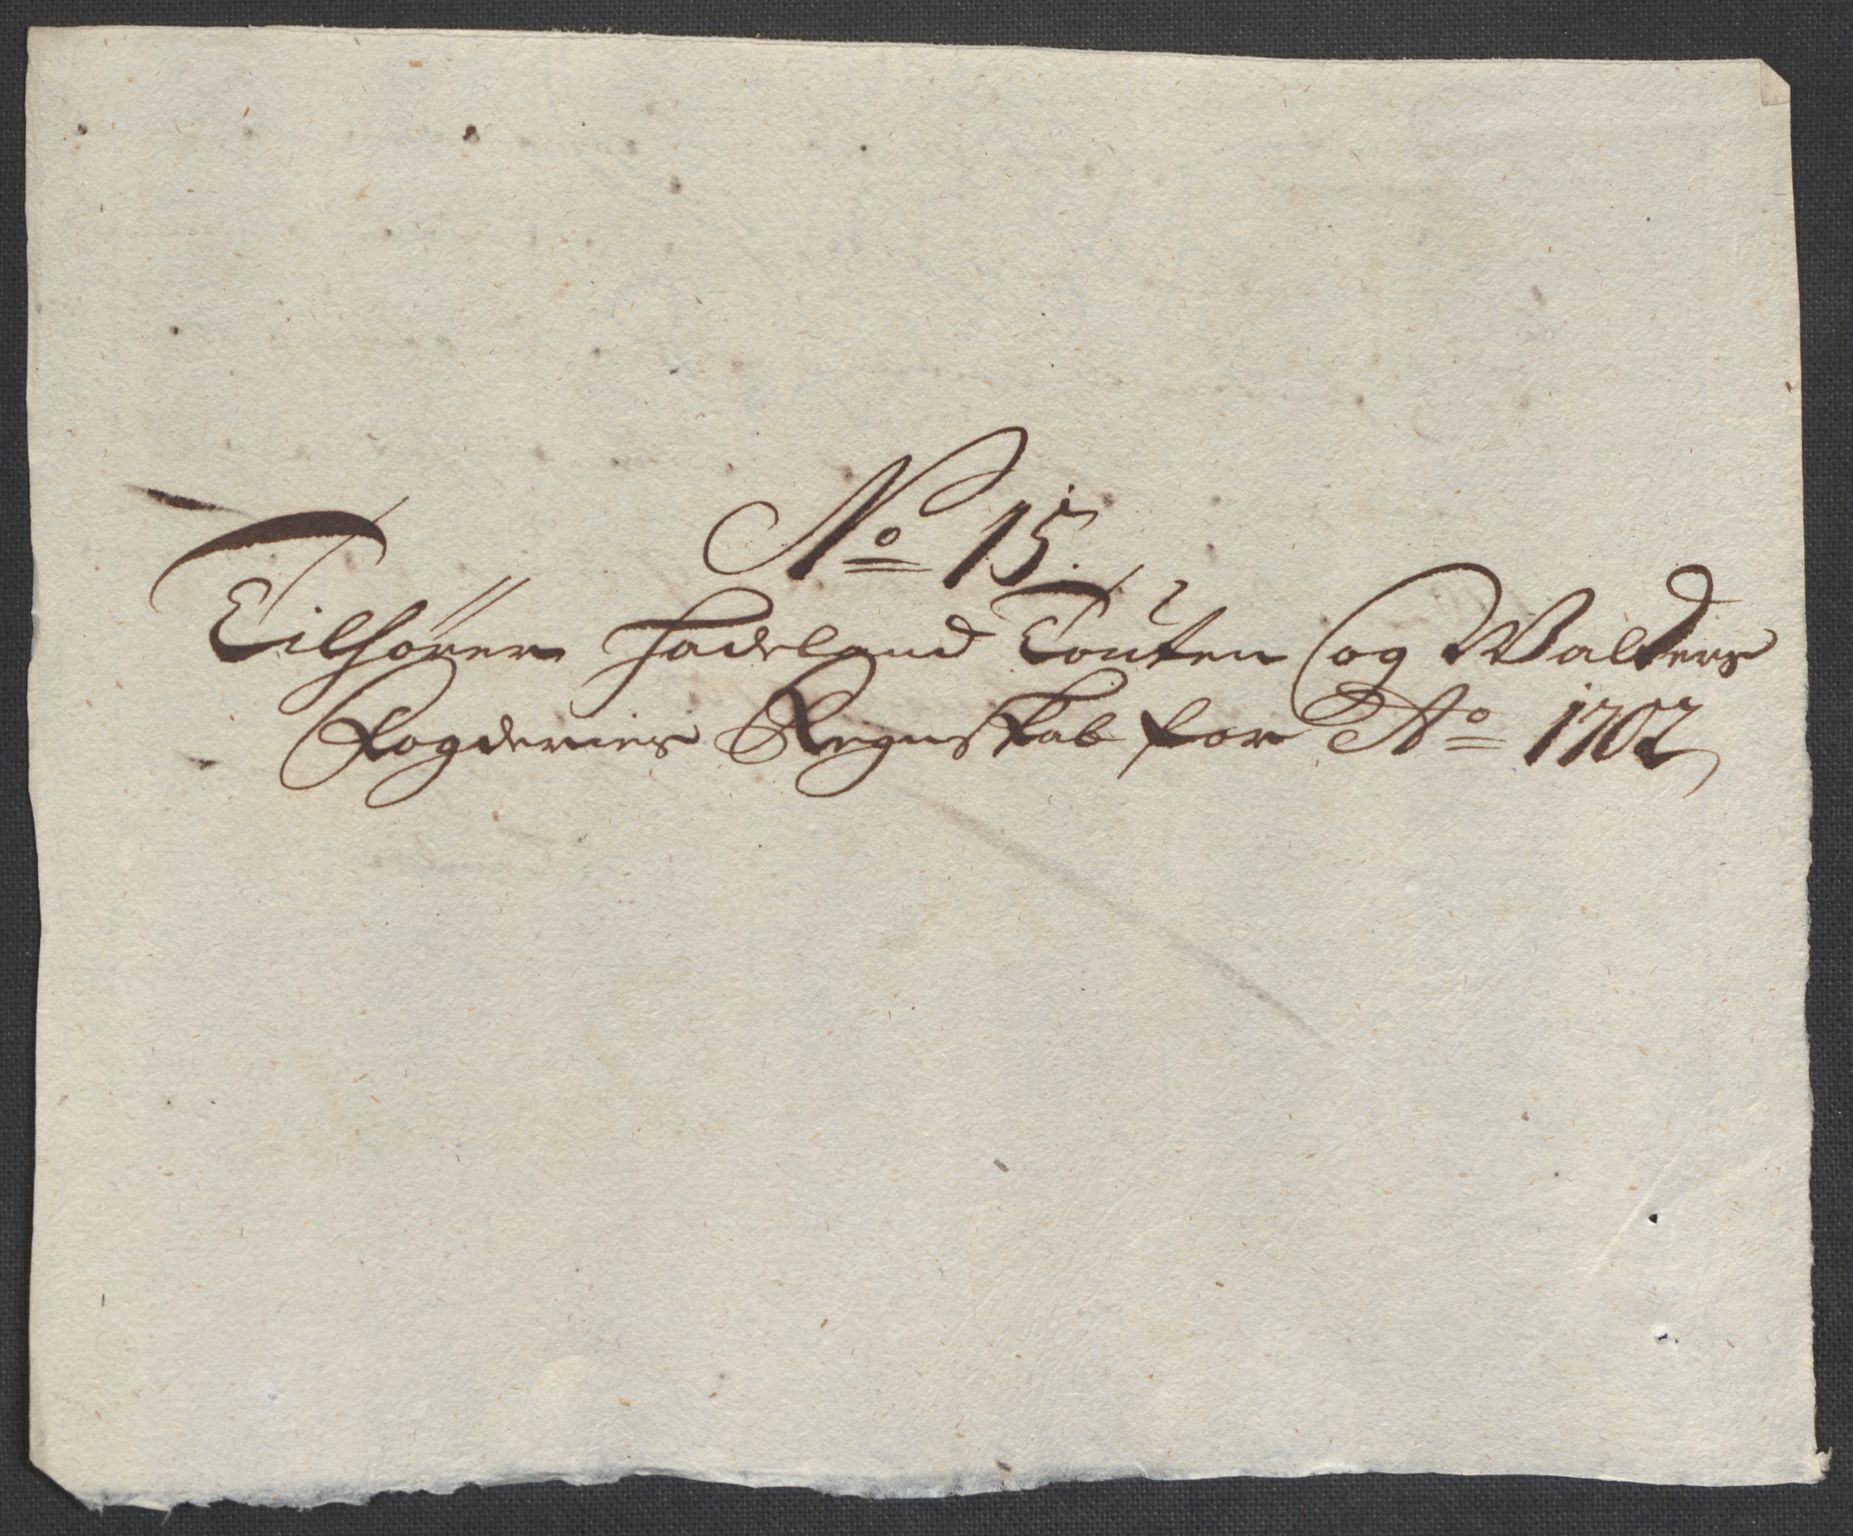 No 15.
Tilhörer Hadeland Touten og Walders
Fogderies Regnskab for Ao 1702